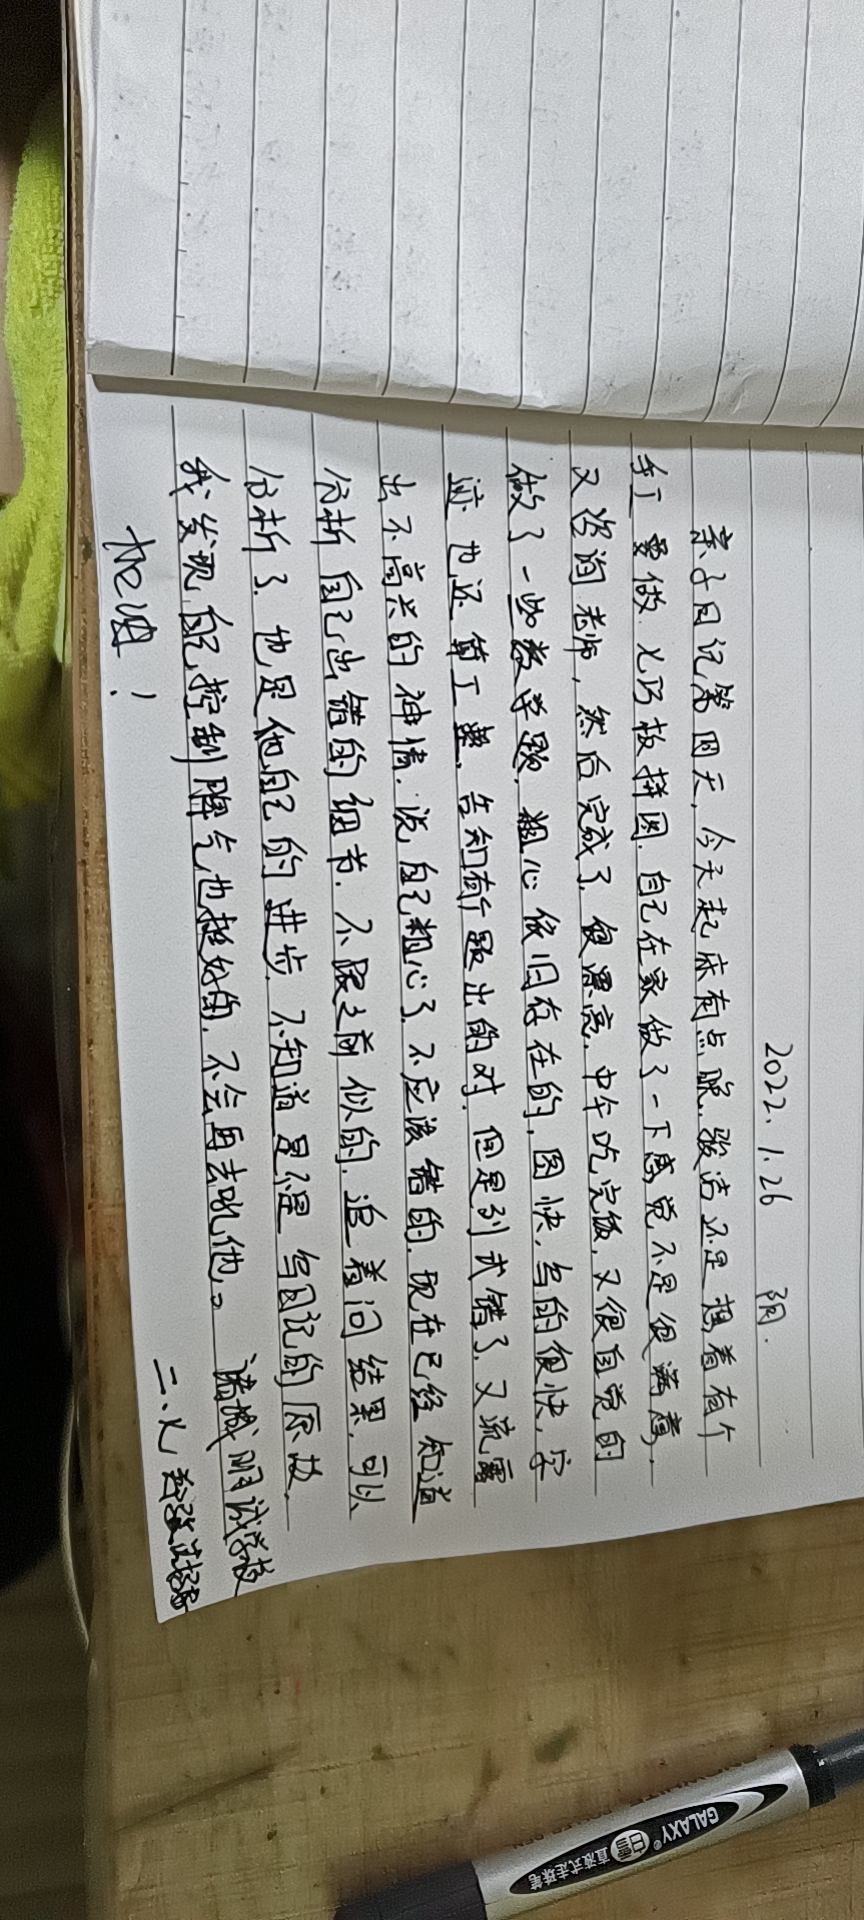 2022.1.26 阴.
亲子日记第四天,今天起床有点晚.骏洁还是想着有个
手工要做.七巧板拼图.自己在家做了一下感觉不是很满意.
又咨询老师,然后完成了.很漂亮.中午吃完饭,又很自觉的
做了一些数学题.粗心依旧存在的,图快,写的很快,字
迹也还算工整.告知有个题出的对.但是列式错了.又流露
出不高兴的神情.说自己粗心了.不应该错的.现在已经知道
分析自己出错的细节.不跟之前似的.追着问结果,可以
分析了.也是他自己的进步.不知道是不是写日记的原故.
我发现自己控制脾气也挺好的.不会再去吼他。
加油! 诸城明诚学校
二.七
GALAXY®
直液式走珠笔